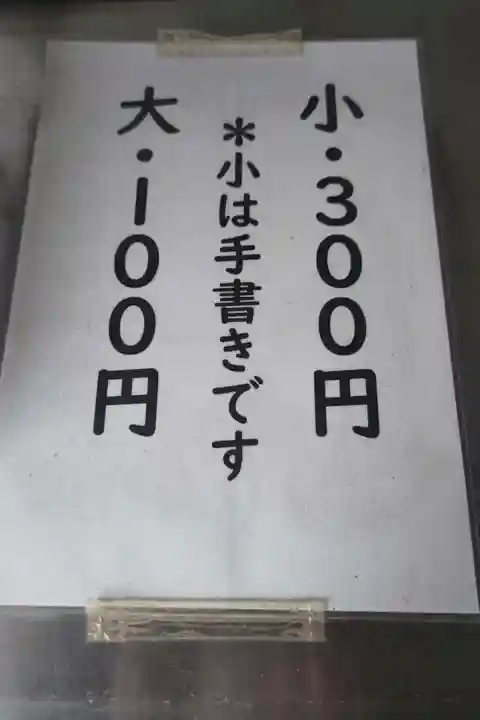 小・３００円
＊小は手書きです
大・１００円